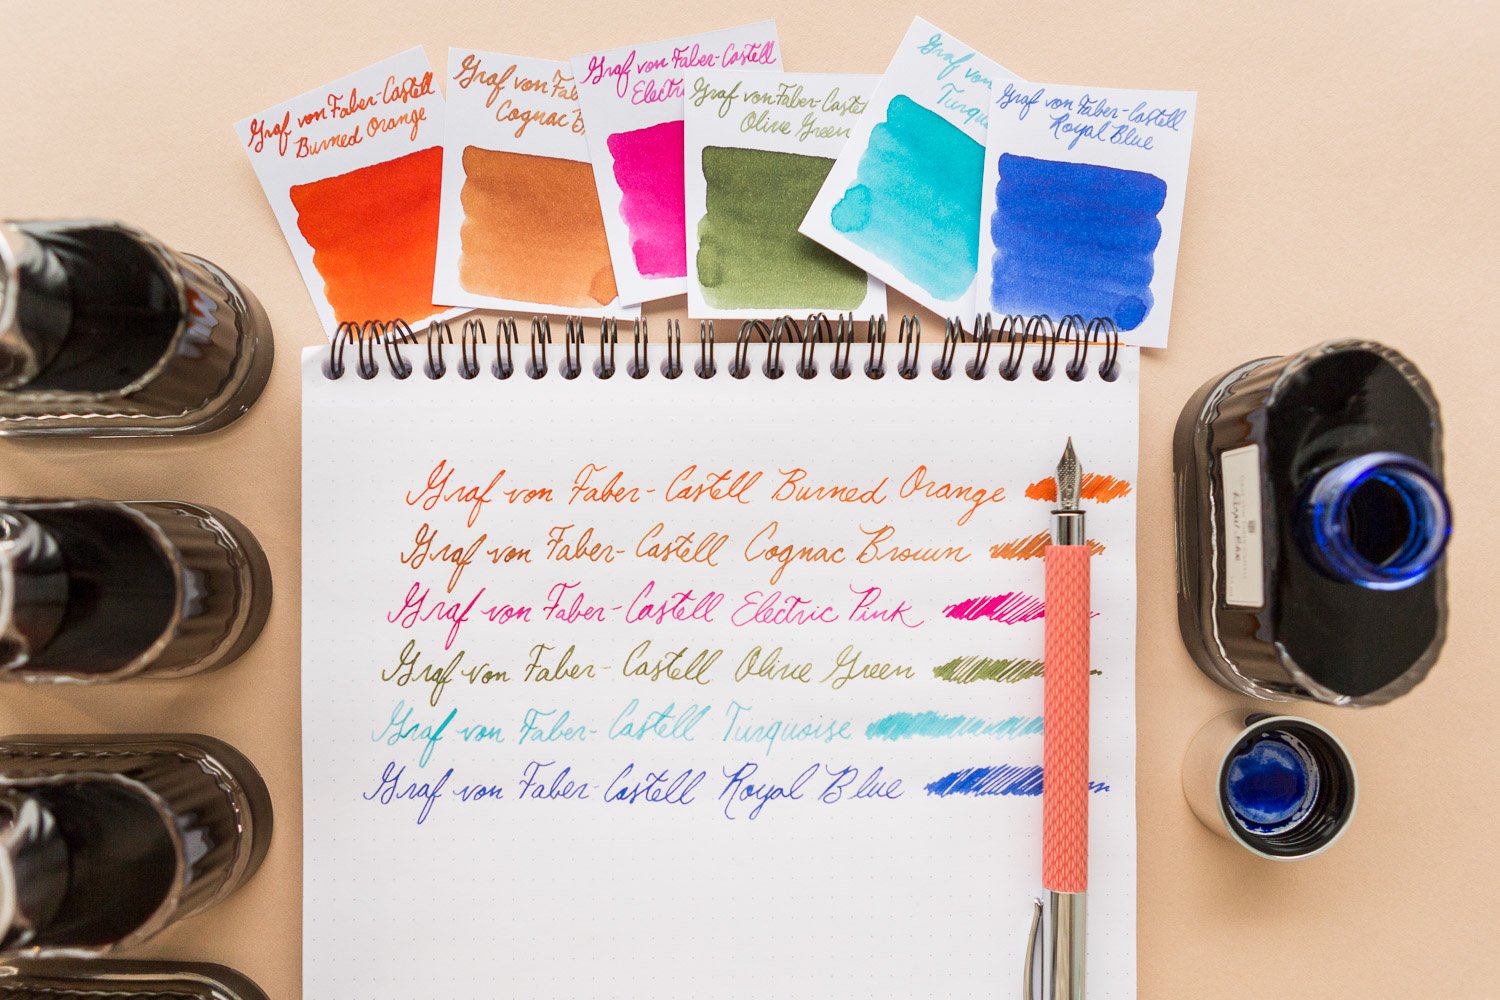 Graf von Faber-Castell
Burned Orange
Graf von Fab
Cognac B
Graf von Faber-Castell
Electri
Graf von Faber-Castell
Olive Green
Graf von
Turquo
Graf von Faber-Castell
Royal Blue
Graf von Faber-Castell Burned Orange
Graf von Faber-Castell Cognac Brown
Graf von Faber-Castell Electric Pink
Graf von Faber-Castell Olive Green
Graf von Faber-Castell Turquoise
Graf von Faber-Castell Royal Blue